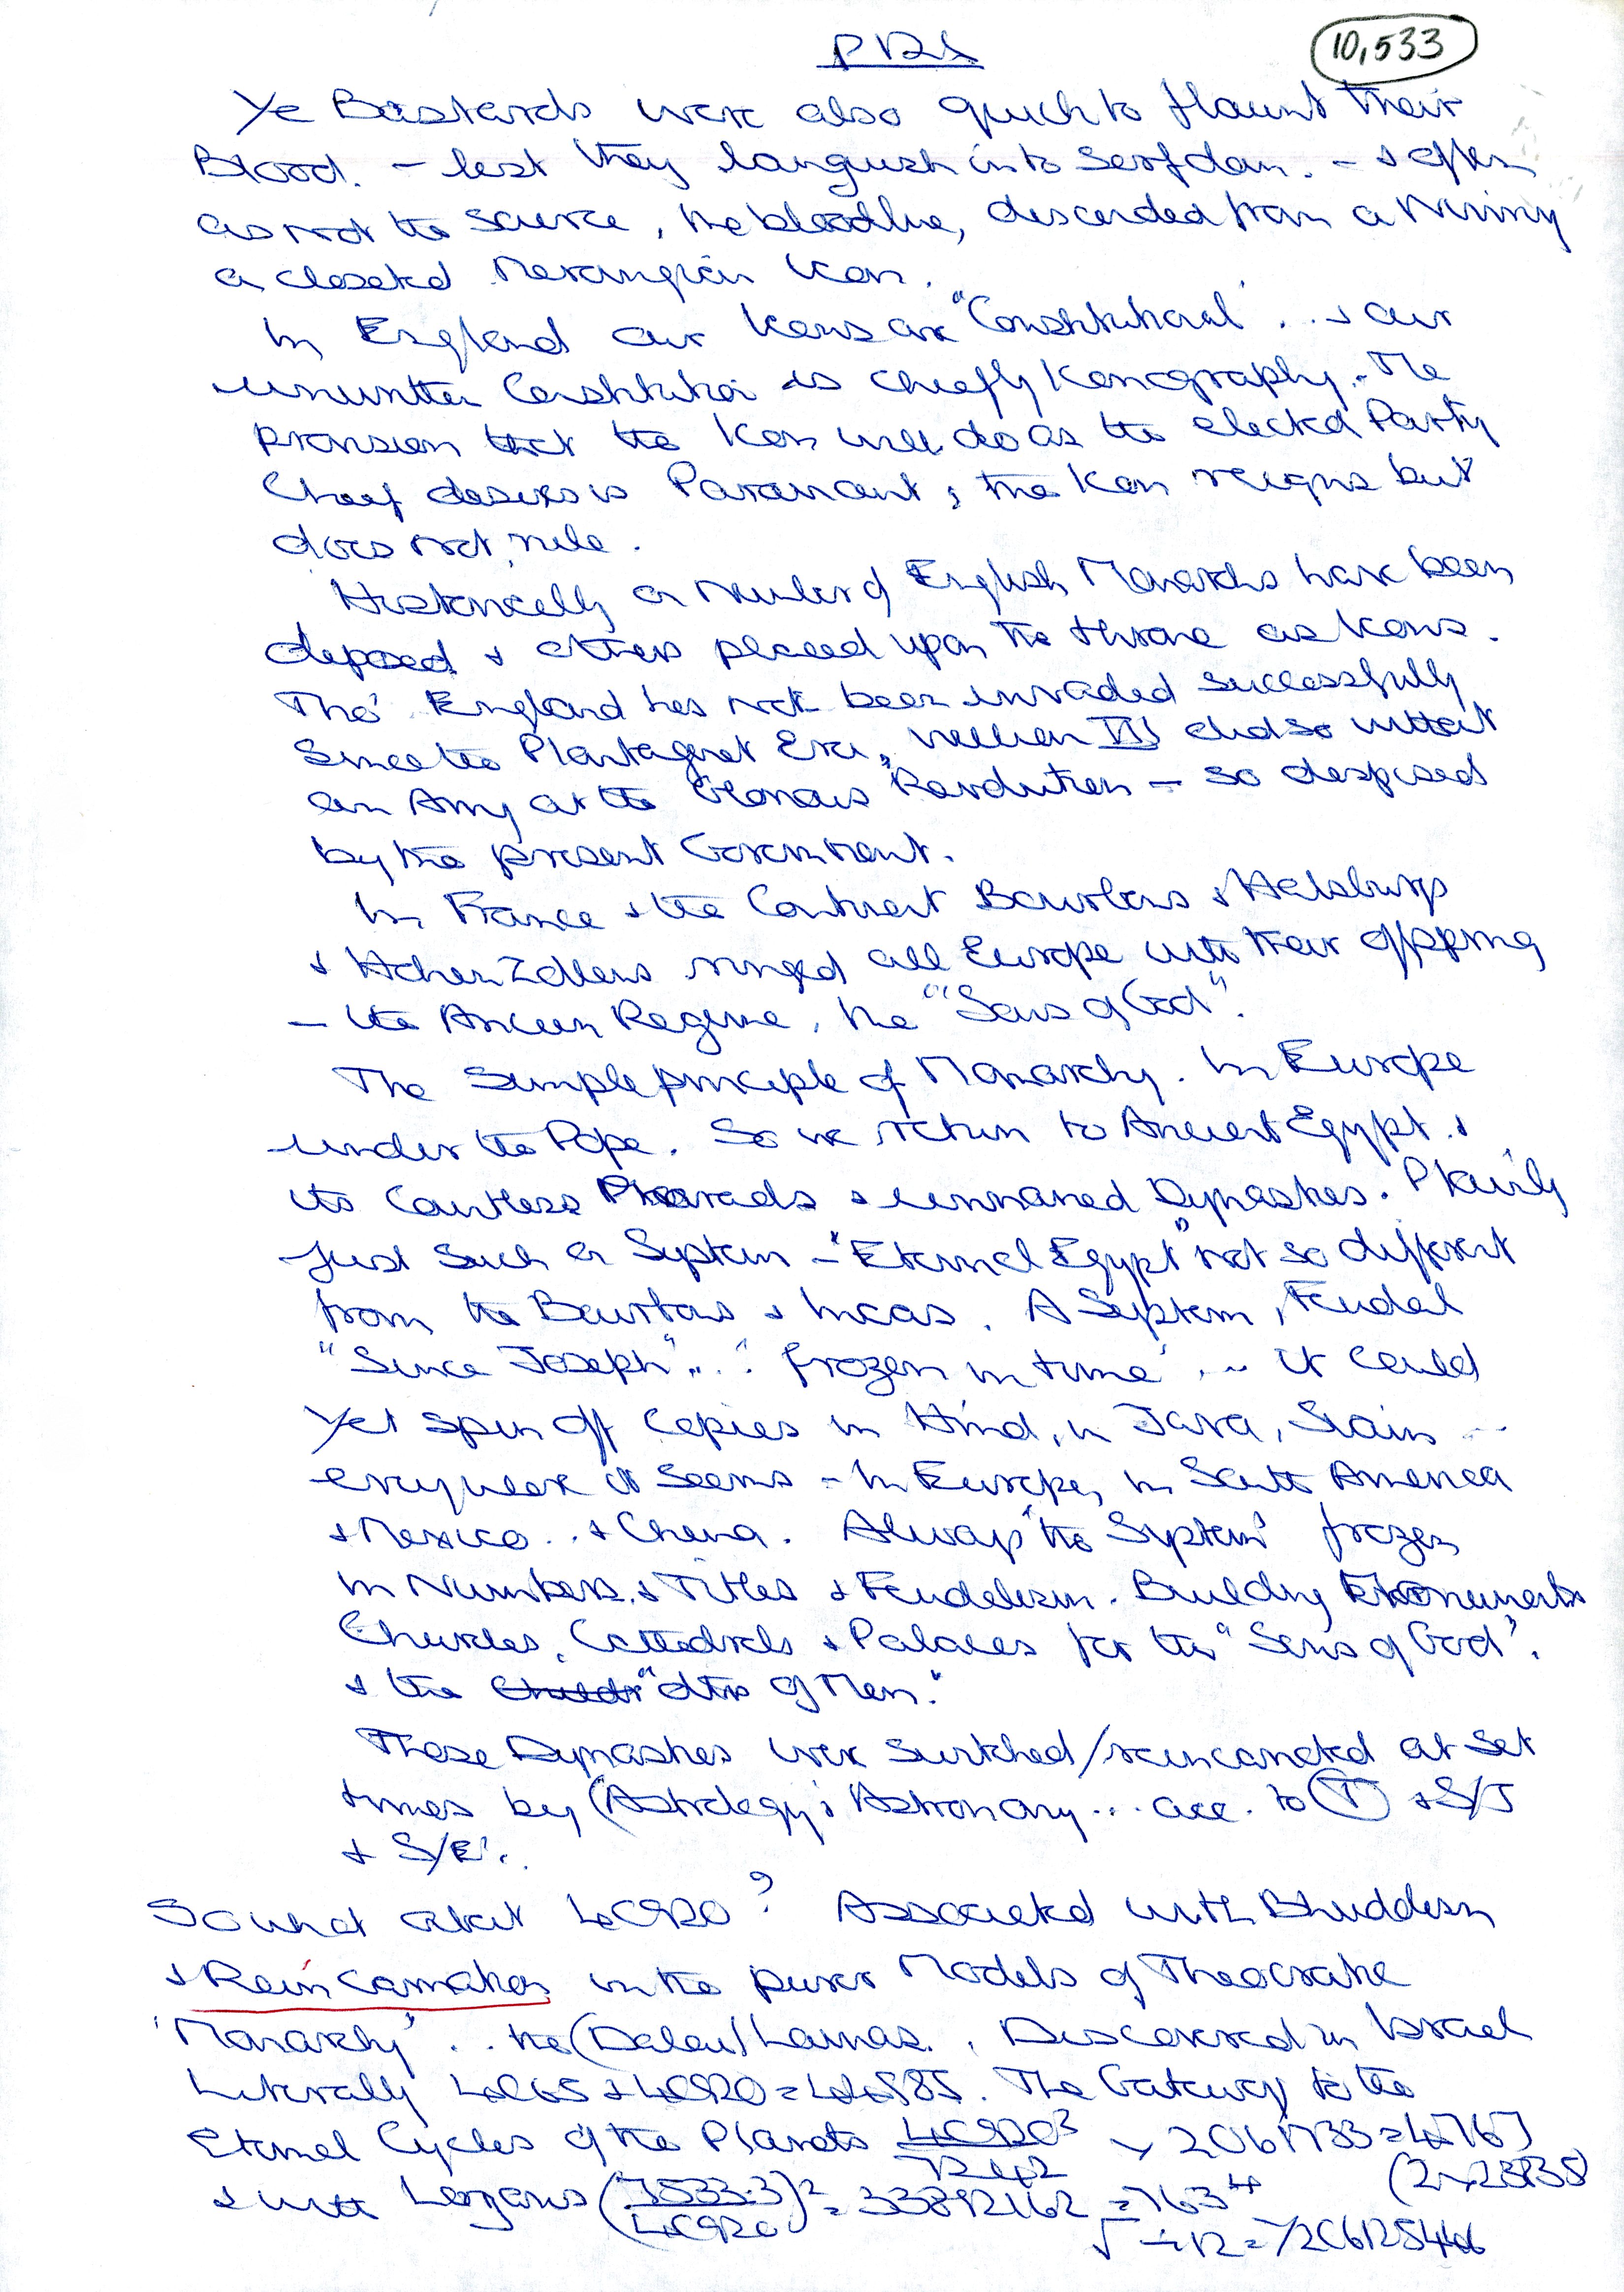 10,533
Ye Bastards were also quick to flaunt their
Blood. – lest they languish into Serfdom. – & often
as not the source, the bloodline, descended from a
a closeted Merovingian Icon.
In England our Icons are "Constitutional" . . & our
unwritten Constitution is chiefly Iconography. The
provision that the Icon will do as the elected Party
Chief desires is Paramount; the Icon reigns but
does not rule.
Historically a Number of English Monarchs have been
deposed & others placed upon the throne as Icons.
Tho' England has not been invaded successfully
Since the Plantagnet Era, William III did so without
an Army at the "Glorious Revolution – so despised
by the present Government.
In France & the Continent Bourbons & Habsburgs
& Hohenzollens ringed all Europe with their offspring
– the Ancien Regime, the "Sons of God".
The Simple principle of Monarchy. In Europe
under the Pope. So we return to Ancient Egypt &
its Countless & unnamed Dynasties. Plainly
Just Such a System – "Eternal Egypt" not so different
from the Bourbons & Incas. A System, Feudal
"Since Joseph"... 'frozen in time' ... it could
Yet spin off Copies in Hind, in Java, Siam ...
everywhere it Seems – In Europe, in South America
& Mexico .. & China. Always 'the System' frozen
in Numbers & Titles & Feudalism. Building Monuments
Churches, Cathedrals & Palaces for the "Sons of God".
& the "dtrs of Men."
These Dynasties were Switched/reincarnated at Set
times by (Astrology; Astronomy ... acc. to (T) & S/J
& S/E'..
So what about 40920? Associated with Bhuddism
& Reincarnation in the purer Models of Theocratic
'Monarchy' . . the (Dalai) Lamas. . Discovered in Israel
Literally & 40920 = . The Gateway to the
Eternal Cycles of the Planets 40920
& with (
40920 )² = 33892162 = 763⁴
√ ÷ 12 =